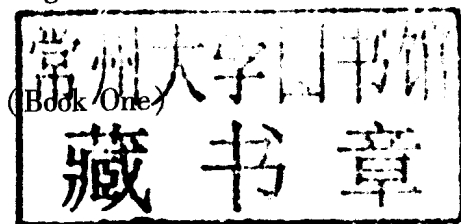 常州大学图书馆
(Book One)
藏书章